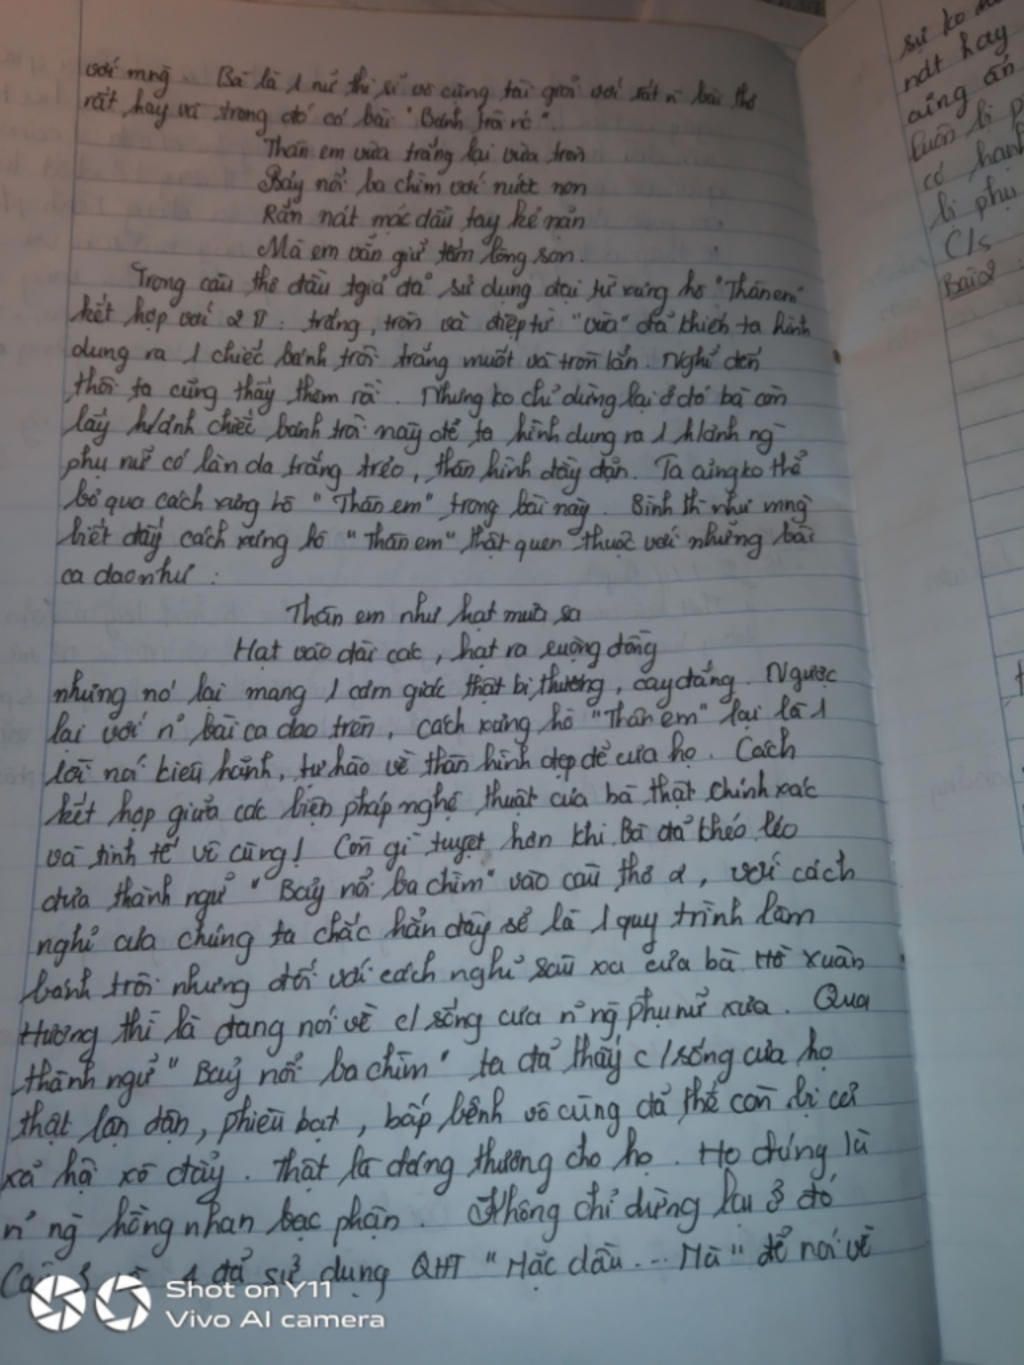 với mng. Bà là 1 nữ thi sĩ vô cùng tài giỏi với rất n' bài thơ
rất hay và trong đó có bài "Bánh trôi nc".
Thân em vừa trắng lại vừa tròn
Bảy nổi ba chìm với nước non
Rắn nát mặc dầu tay kẻ nặn
Mà em vẫn giữ tấm lòng son.
Trong câu thơ đầu tgiả đã sử dụng đại từ xưng hô "Thân em"
kết hợp với 2 TT: trắng, tròn và điệp từ "vừa" đã khiến ta hình
dung ra 1 chiếc bánh trôi trắng muốt và tròn lẳn. Nghĩ đến
thôi ta cũng thấy thèm rồi. Nhưng ko chỉ dừng lại ở đó bà còn
lấy h/ảnh chiếc bánh trôi này để ta hình dung ra 1 h/ảnh ng
phụ nữ có làn da trắng trẻo, thân hình đầy đặn. Ta cũng ko thể
bỏ qua cách xưng hô "Thân em" trong bài này. Bình th như mng
biết đấy cách xưng hô "Thân em" thật quen thuộc với những bài
ca dao như :
Thân em như hạt mưa sa
Hạt vào đài các, hạt ra ruộng đồng
nhưng nó lại mang 1 cảm giác thật bi thương, cay đắng. Ngược
lại với n' bài ca dao trên, cách xưng hô "Thân em" lại là 1
lời nói kiêu hãnh, tự hào về thân hình đẹp đẽ của họ. Cách
kết hợp giữa các biện pháp nghệ thuật của bà thật chính xác
và tinh tế vô cùng! Còn gì tuyệt hơn khi Bà đã khéo léo
đưa thành ngữ "Bảy nổi ba chìm" vào câu thơ 2, với cách
nghĩ của chúng ta chắc hẳn đây sẽ là 1 quy trình làm
bánh trôi nhưng đối với cách nghĩ sâu xa của bà Hồ Xuân
Hương thì là đang nói về c/sống của n' ng phụ nữ xưa. Qua
thành ngữ "Bảy nổi ba chìm" ta đã thấy c/sống của họ
thật lận đận, phiêu bạt, bấp bênh vô cùng đã thế còn bị cả
xã hội xô đẩy. Thật là đáng thương cho họ. Họ đúng là
n' ng hồng nhan bạc phận. Không chỉ dừng lại ở đó
4 đã sử dụng QHT "Mặc dầu... Mà" để nói về
Shot on Y11
Vivo AI camera
sự ko
nát hay
cũng
luôn bị
có hạnh
bị phụ
C/s
Bài 2 :